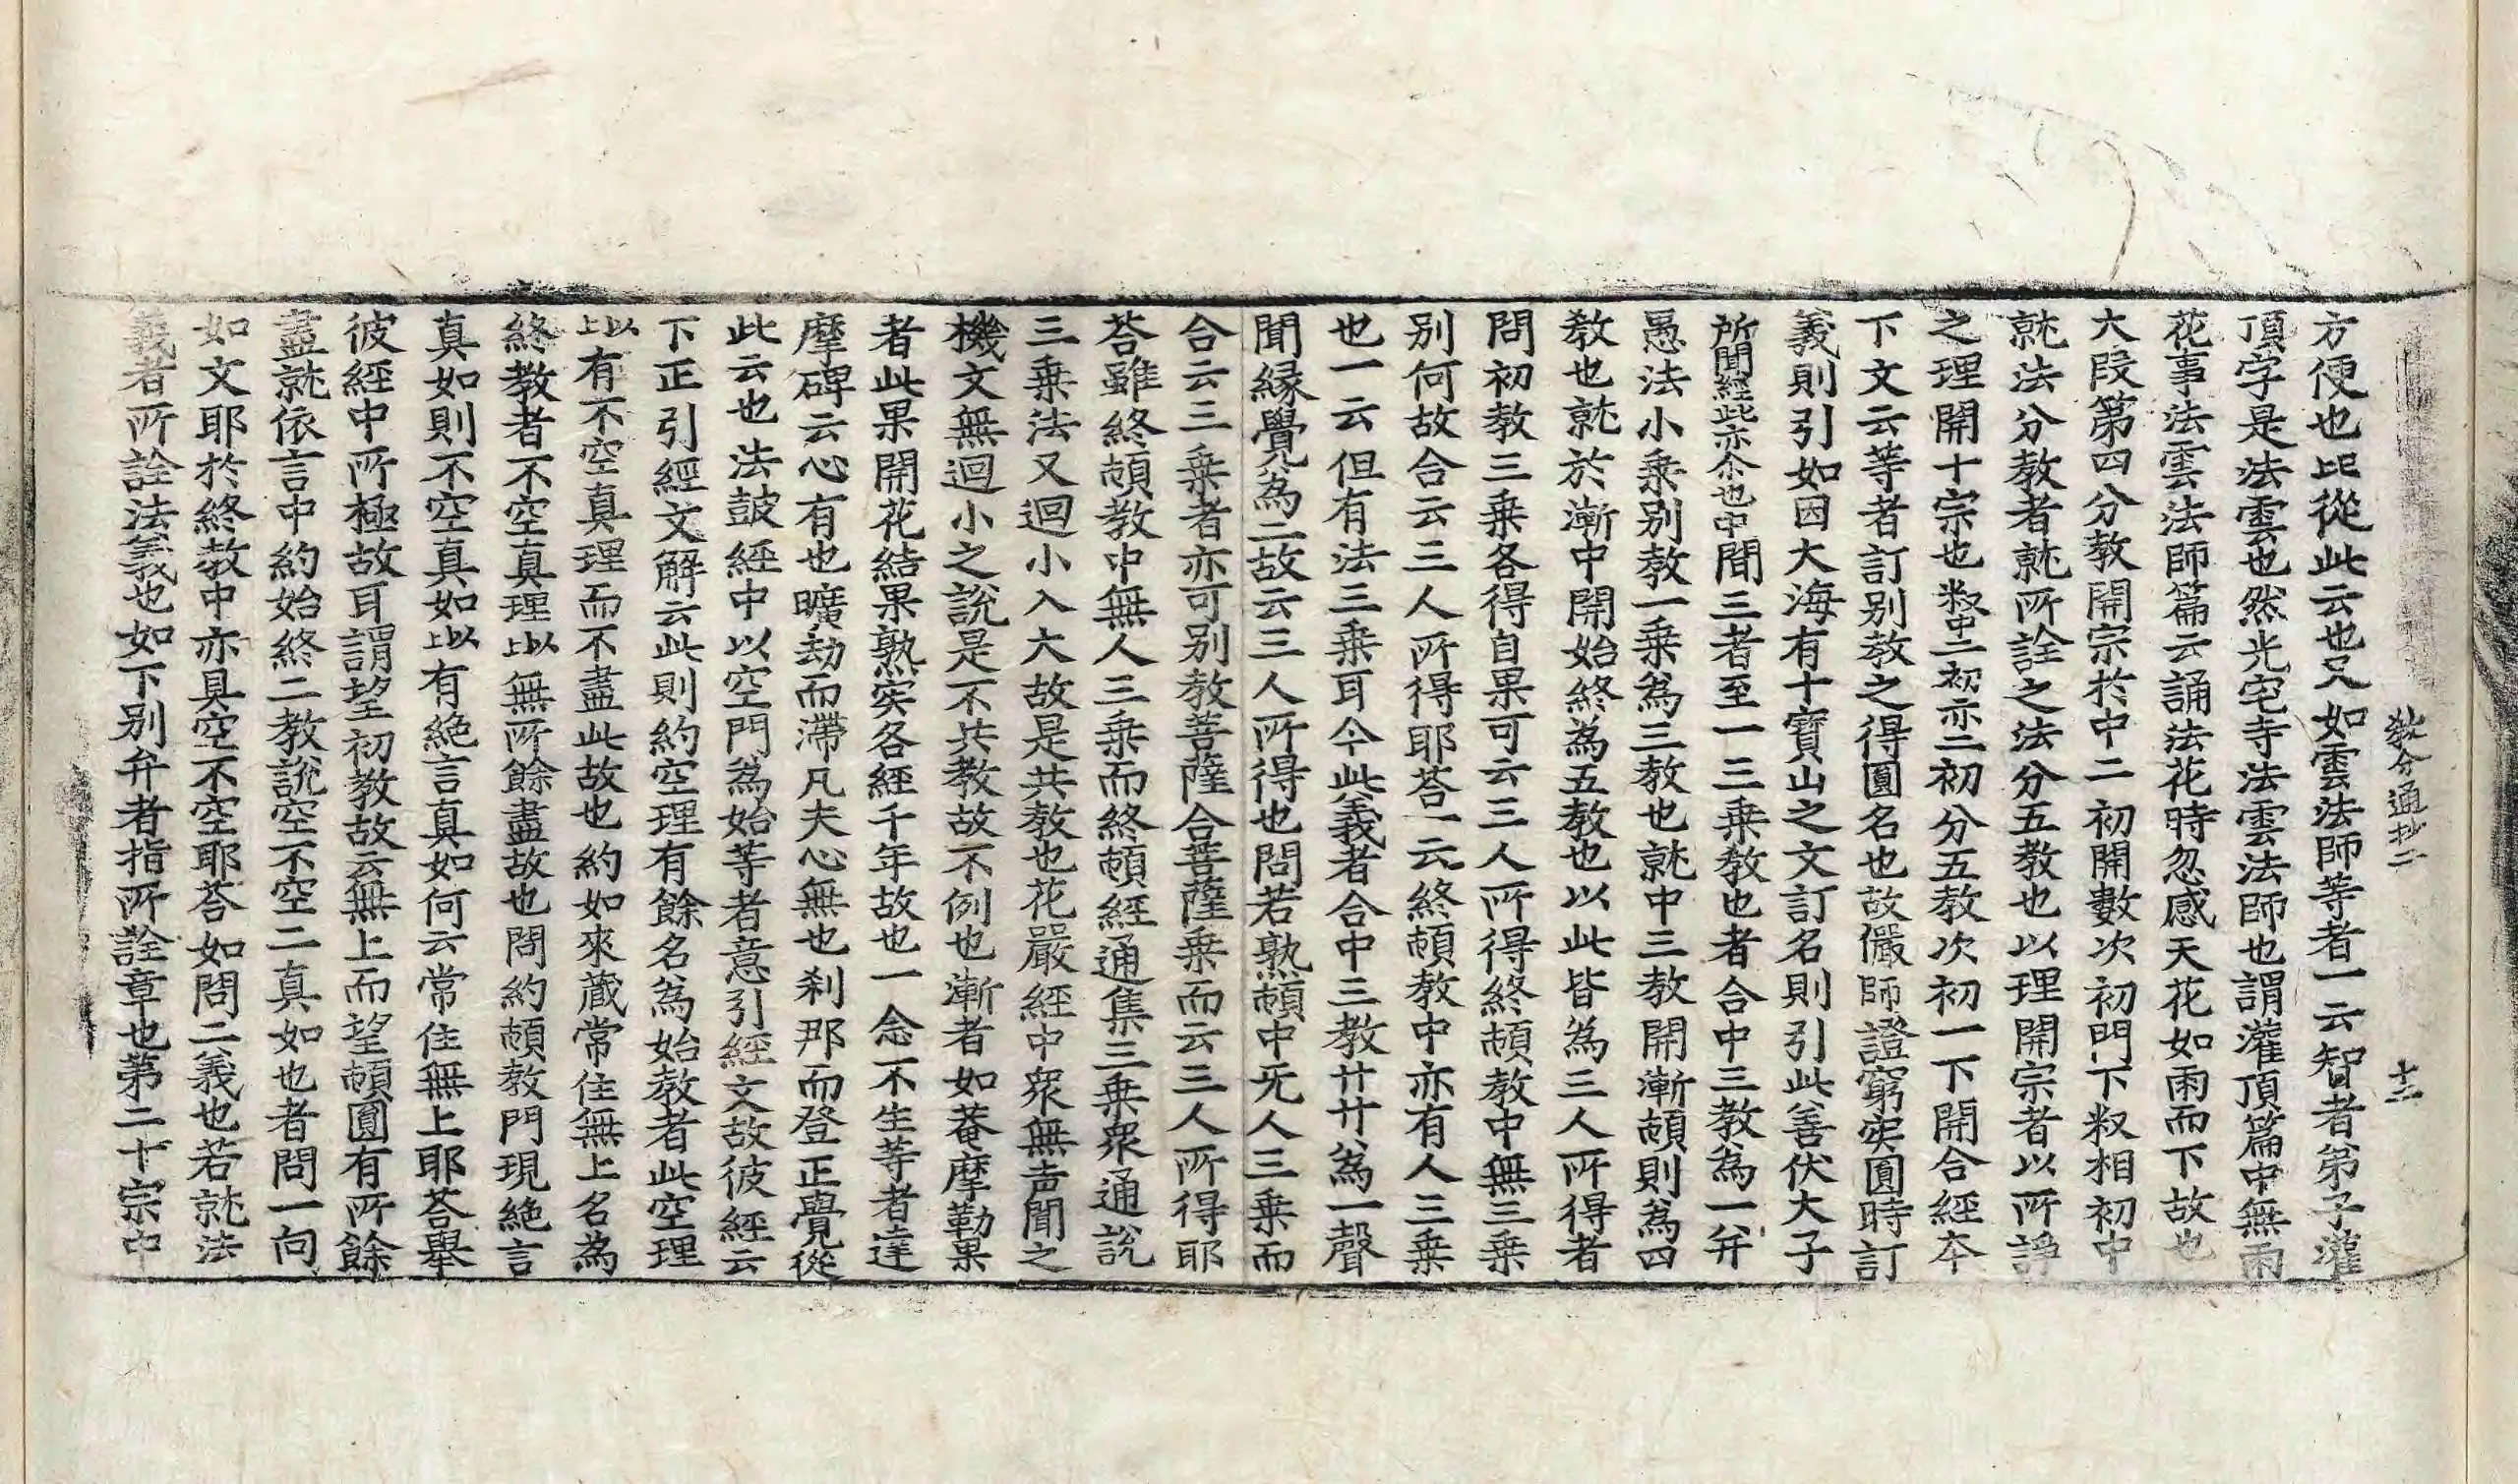 教分通抄二 十二
方便也比從此云也況如雲法師等者一云智者第子灌
頂字是法雲也然光宅寺法雲法師也謂灌頂篇中無雨
花事法雲法師篇云誦法花時忽感天花如雨而下故也
大段第四分教開宗於中二初開數次初門下叙相初中
就法分教者就所詮之法分五教也以理開宗者以所諍
之理開十宗也叙中二初亦二初分五教次初一下開合經夲
下文云等者訂別教之得圓名也故儼師證窮実圓時訂
義則引如因大海有十寶山之文訂名則引此善伏大子
所聞經此亦尒也中聞三者至一三乗教也者合中三教為一并
愚法小乗別教一乗為三教也就中三教開漸頓則為四
教也就於漸中開始終為五教也以此皆為三人所得者
問初教三乗各得自果可云三人所得終頓教中無三乗
別何故合云三人所得耶荅一云終頓教中亦有人三乗
也一云但有法三乗耳今此義者合中三教廿廿為一聲
聞緣覺為二故云三人所得也問若熟頓中无人三乗而
合云三乗者亦可別教菩薩合菩薩乗而云三人所得耶
荅雖終頓教中無人三乗而終頓經通集三乗衆通說
三乗法又迴小入大故是共教也花嚴經中衆無声聞之
機文無迴小之說是不共教故不例也漸者如菴摩勒果
者此果開花結果熟実各經千年故也一念不生等者達
摩碑云心有也曠劫而滯凡夫心無也刹那而登正覺從
此云也法鼓經中以空門為始等者意引經文故彼經云
下正引經文解云此則約空理有餘名為始教者此空理
上以有不空真理而不盡此故也約如來藏常住無上名為
終教者不空真理上以無所餘盡故也問約頓教門現絶言
真如則不空真如上以有絶言真如何云常住無上耶荅舉
彼經中所極故耳謂望初教故云無上而望頓圓有所餘
盡就依言中約始終二教說空不空二真如也者問一向
如文耶於終教中亦具空不空耶荅如問二義也若就法
義者所詮法義也如下別弁者指所詮章也第二十宗中